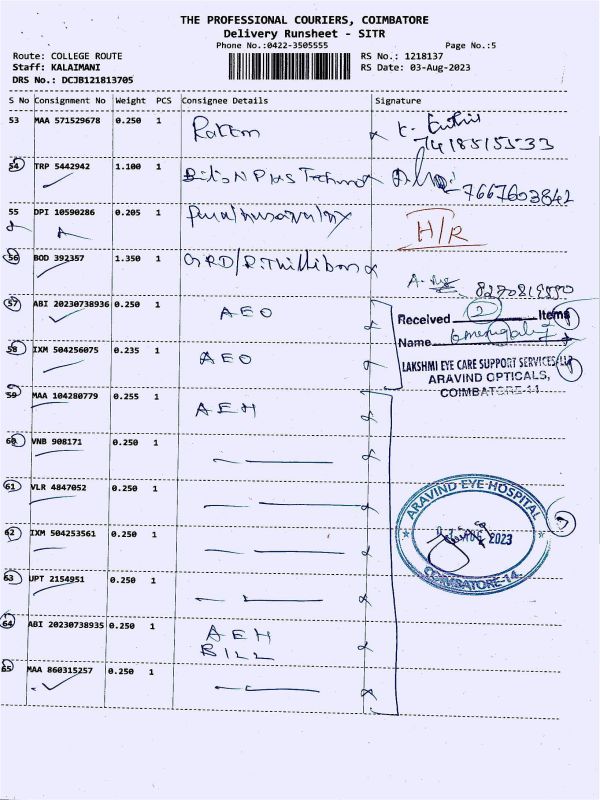 THE PROFESSIONAL COURIERS, COIMBATORE
Delivery Runsheet - SITR
Phone No.:0422-3505555 Page No.:5
Route: COLLEGE ROUTE RS No.: 1218137
Staff: KALAIMANI RS Date: 03-Aug-2023
DRS No.: DCJB121813705
S No Consignment No Weight PCS Consignee Details Signature
53 MAA 571529678 0.250 1
7418515533
54 TRP 5442942 1.100 1
7667603842
55 DPI 10590286 0.205 1 H/R
56 BOD 392357 1.350 1
57 ABI 20230738936 0.250 1 AEO
Received 2 Items
Name
58 IXM 504256075 0.235 1 AEO
LAKSHMI EYE CARE SUPPORT SERVICES LLP
ARAVIND OPTICALS,
COIMBATORE-14
59 MAA 104280779 0.255 1 AEH
60 VNB 908171 0.250 1
61 VLR 4847052 0.250 1
ARAVIND-EYE-HOSPITAL
62 IXM 504253561 0.250 1
2023
COIMBATORE-14.
63 UPT 2154951 0.250 1
64 ABI 20230738935 0.250 1 AEH
BILL
65 MAA 860315257 0.250 1